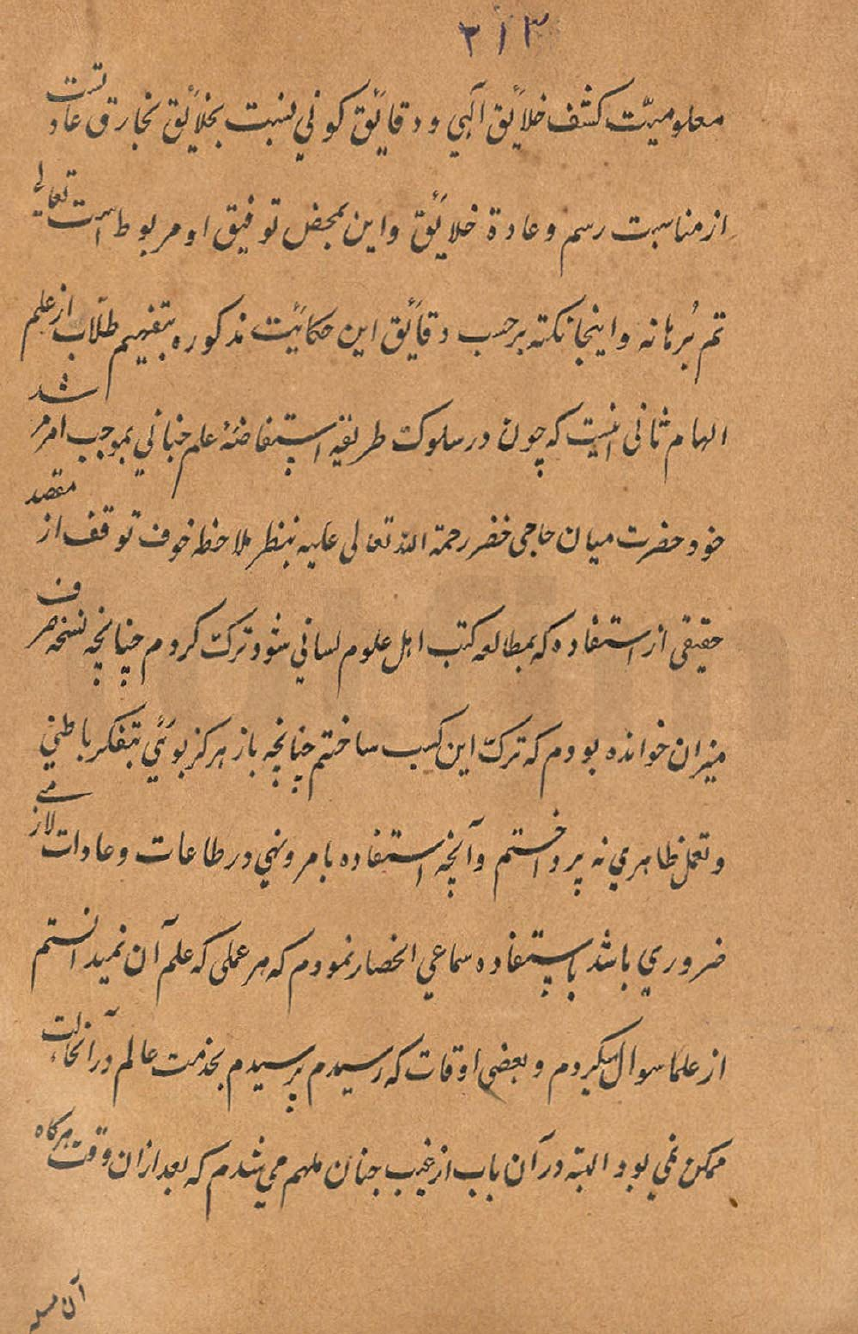 ۲۱۳
معلومیّت کشف خلایٔق آلهي و دقایٔق کوني نسبت بخلایٔق بخارق عادتست
از مناسبت رسم و عادة خلایٔق واین بمحض توفیق او مربوط است تعالی
تم بُرهانه و اینجا نکته برحسب دقایٔق این حکایٔیت مذکوره بتفهیم طلّاب از علم
الهام ثانی اینست که چون در سلوک طریقهٔ استفاضهٔ علم جناني بموجب امر مرشد
خود حضرت میان حاجی خضر رحمة الله تعالی علیه بنظر ملاحظه خوف توقف از مقصد
حقیقی از استفاده که بمطالعه کتب اهل علوم لساني شود ترک کردم چنانچه نسخه صرف
میزان خوانده بودم که ترک این کسب ساختم چنانچه باز هرگز بویٔي بتفکر باطني
وتعمل ظاهري نه پرداختم وآنچه استفاده بامر ونهي در طاعات وعادات لازمے
ضروري باشد باستفاده سماعي انحصار نمودم که هر عملی که علم آن نمیدانستم
از علما سوال میکردم و بعضی اوقات که رسیدم پرسیدم بخدمت عالم در آنحالت
ممکن نمي بود البته در آن باب از غیب جنان ملهم مي شدم که بعد ازان وقت هرگاه